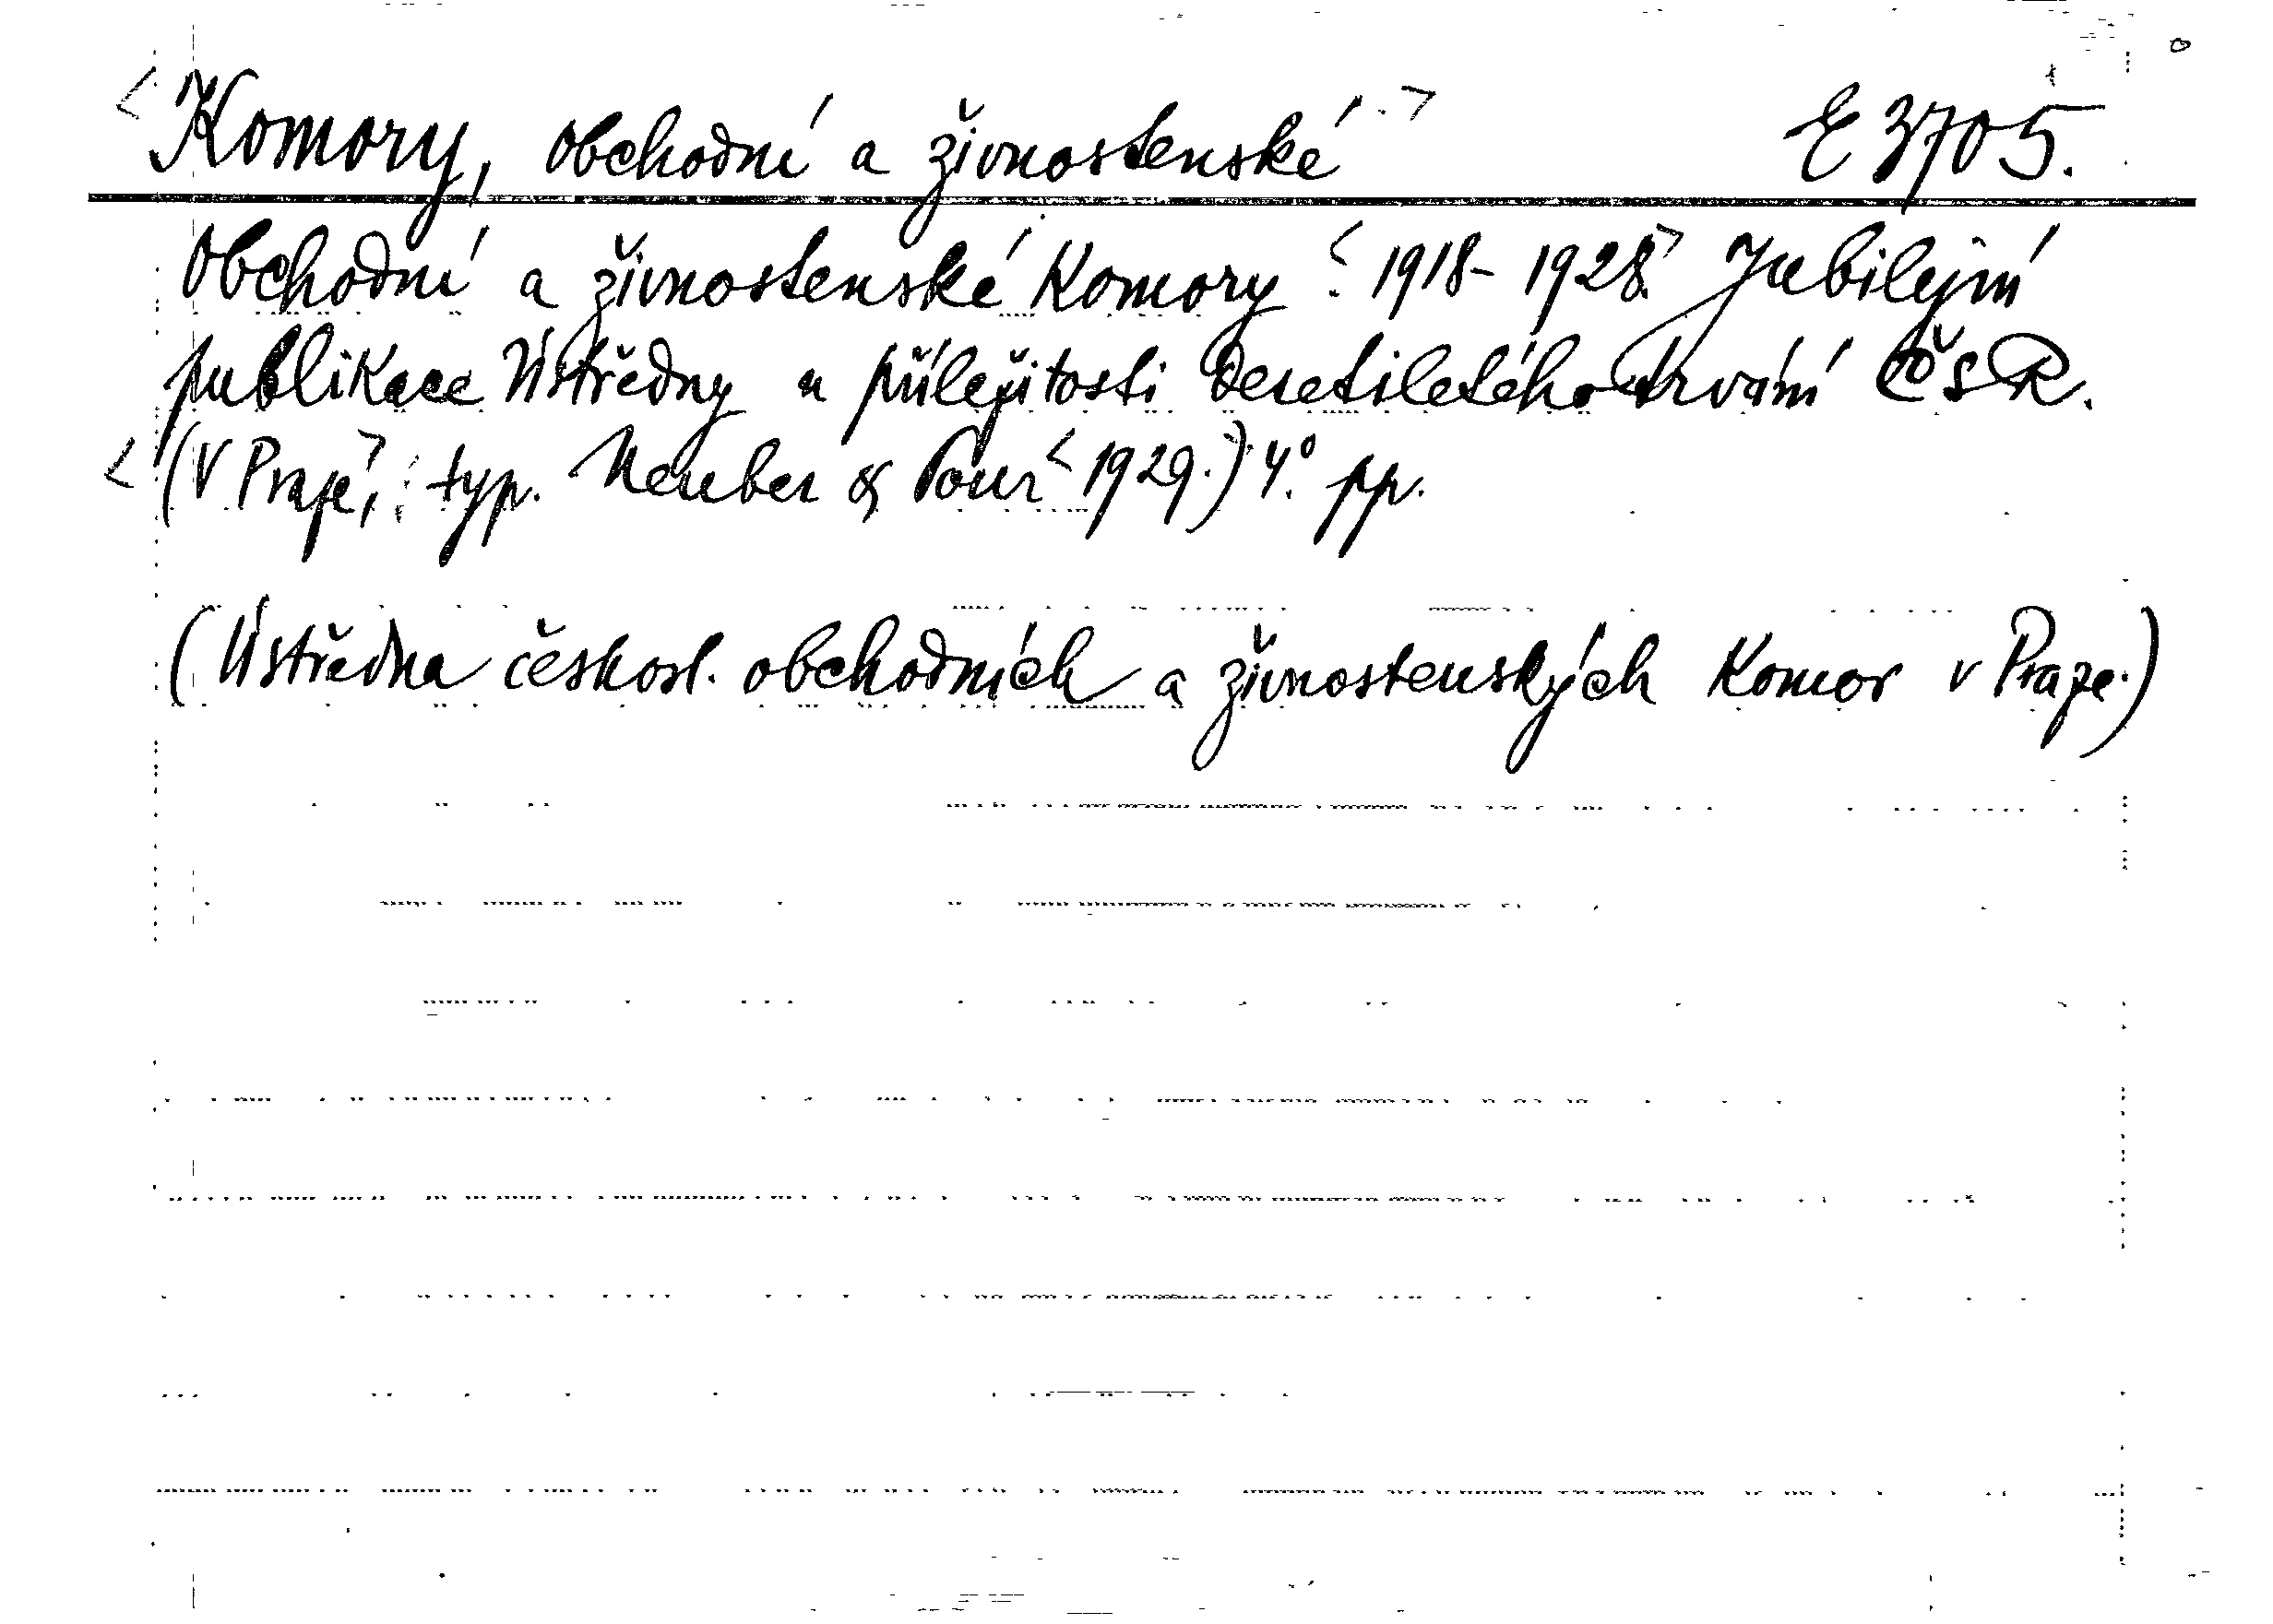 <Komory, obchodní a živnostenské.> E 3705.
Obchodní a živnostenské Komory <. 1918-1928.> Jubilejní
publikace Ústředny u příležitosti desetiletého trvání ČSR.
<(V Praze,> typ. Neuber & Pour < 1929.) 4°. pp.
(Ústředna českosl. obchodních a živnostenských Komor v Praze.)